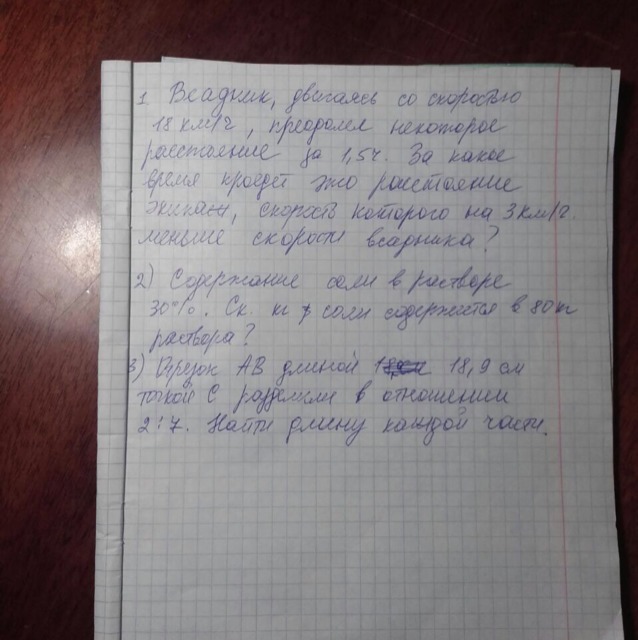 1 Всадник, двигаясь со скоростью
18 км/ч, преодолел некоторое
расстояние за 1,5ч. За какое
время проедет это расстояние
экипаж, скорость которого на 3 км/ч.
меньше скорости всадника?
2) Содержание соли в растворе
30%. Ск. кг соли содержится в 80 кг
раствора?
3) Отрезок АВ длиной 18,9 см
точкой С разделили в отношении
2:7. Найти длину каждой части.